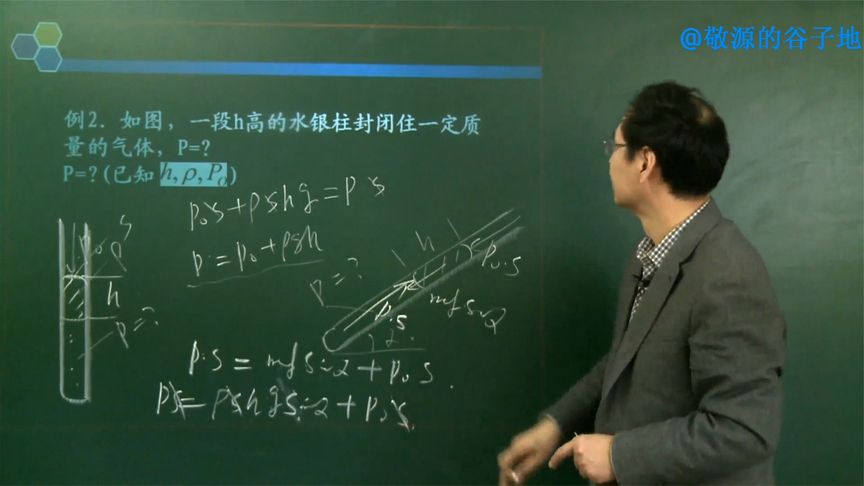 @敬源的谷子地
例2. 如图，一段h高的水银柱封闭住一定质
量的气体，P=?
P=?(已知 h, ρ, P₀)
P₀S+ρShg=PS
P=P₀+ρgh
S
P₀
h
P=?
h
P₀·S
P=?
mgsinα
P·S
α
P·S=mgsinα+P₀S.
PS=ρShgsinα+P₀S.